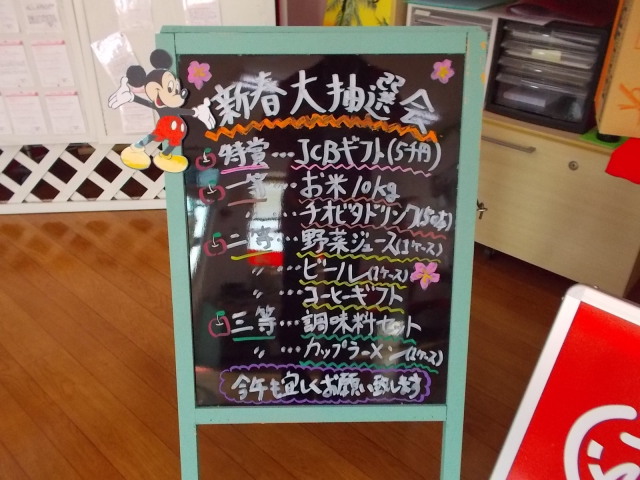 新春大抽選会
特賞…JCBギフト(5千円)
一等…お米10kg
〃…チオビタドリンク
二等…野菜ジュース(1ケース)
〃…ビール(1ケース)
〃…コーヒーギフト
三等…調味料セット
〃…カップラーメン(1ケース)
今年も宜しくお願い致します